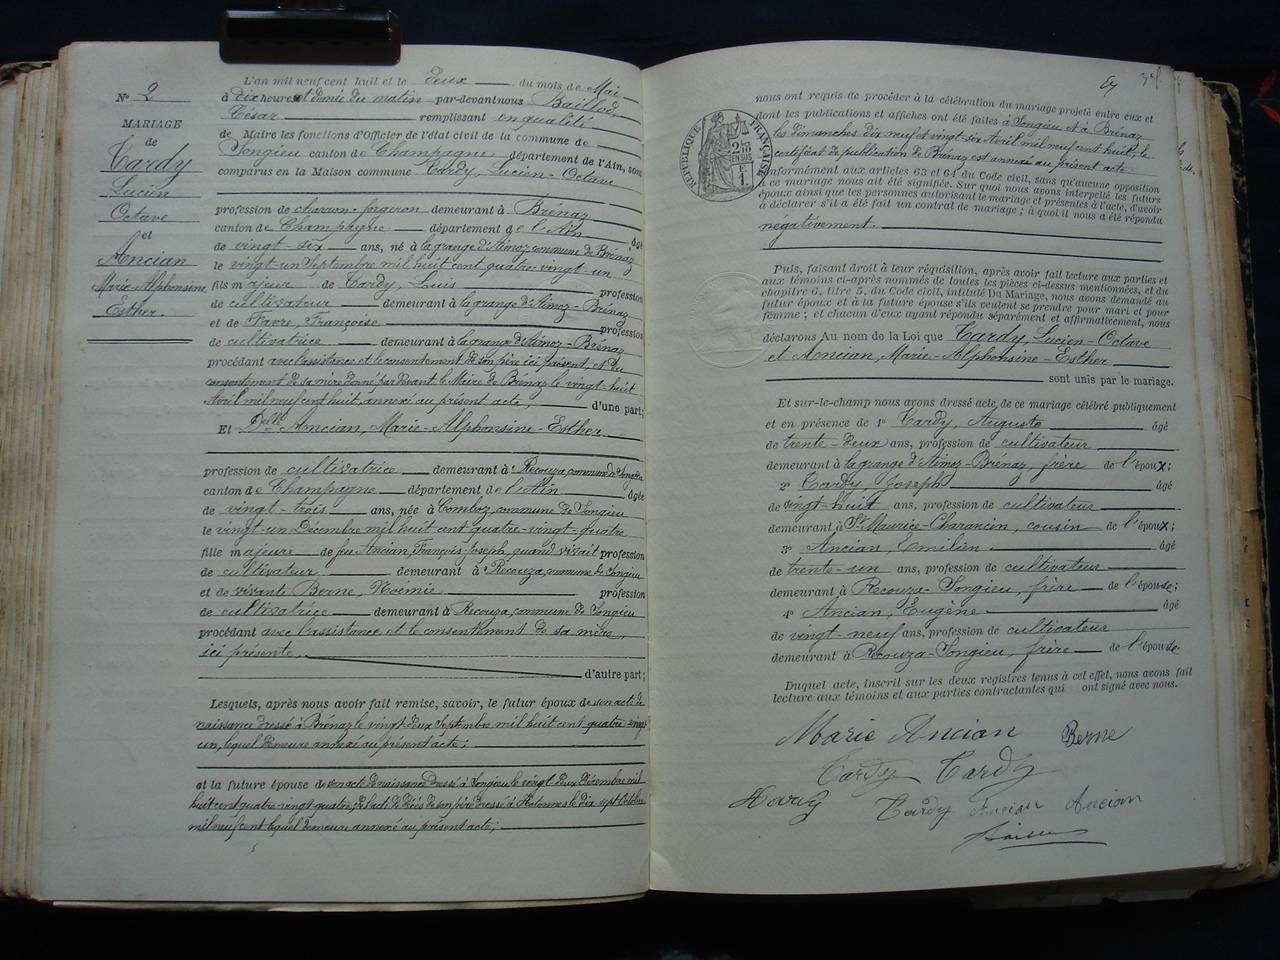 N° 2
MARIAGE
de
Tardy
Lucien
Octave
et
Ancian
Marie Alphonsine
Esther.
L'an mil neuf cent huit et le deux du mois de Mai
à dix heures et demie du matin par-devant nous Baillod,
César remplissant en qualité
de Maire les fonctions d'Officier de l'état civil de la commune de
Songieu canton de Champagne département de l'Ain, sont
comparus en la Maison commune Tardy, Lucien-Octave
profession de charron-forgeron demeurant à Brénaz
canton de Champagne département de l'Ain âgé
de vingt-six ans, né à la grange d'Aimoz, commune de Brénaz
le vingt-un Septembre mil huit cent quatre vingt-un
fils majeur de Tardy, Louis profession
de cultivateur demeurant à la grange d'Aimoz-Brénaz
et de Favre, Françoise profession
de cultivatrice demeurant à la grange d'Aimoz-Brénaz
procédant avec l'assistance et le consentement de son père ici présent, et du
consentement de sa mère donné par devant le Maire de Brénaz le vingt-huit
Avril mil neuf cent huit, annexé au présent acte, d'une part;
Et Delle Ancian, Marie-Alphonsine-Esther
profession de cultivatrice demeurant à Recouza, commune de Songieu
canton de Champagne département de l'Ain âgée
de vingt-trois ans, née à Comboz, commune de Songieu
le vingt-un Décembre mil huit cent quatre-vingt-quatre
fille majeure de feu Ancian, François Joseph, quand vivait profession
de cultivateur demeurant à Recouza, commune de Songieu
et de vivante Berne, Noémie profession
de cultivatrice demeurant à Recouza, commune de Songieu
procédant avec l'assistance et le consentement de sa mère,
ici présente, d'autre part;
Lesquels, après nous avoir fait remise, savoir, le futur époux de son acte de
naissance dressé à Brénaz le vingt deux Septembre mil huit cent quatre vingt
un, lequel demeure annexé au présent acte;
et la future épouse de son acte de naissance dressé à Songieu le vingt-deux Décembre mil
huit cent quatre vingt quatre, de l'acte de décès de son père dressé à Hotonnes le dix sept Octobre
mil neuf cent lequel demeure annexé au présent acte;
34
nous ont requis de procéder à la célébration du mariage projeté entre eux et
dont les publications et affiches ont été faites à Songieu et à Brénaz
les dimanches dix neuf et vingt-six Avril mil neuf cent huit, le
certificat de publication de Brénaz est annexé au présent acte.
RÉPUBLIQUE FRANÇAISE
2/10 EN SUS
conformément aux articles 63 et 64 du Code civil, sans qu'aucune opposition
à ce mariage nous ait été signifiée. Sur quoi nous avons interpellé les futurs
époux ainsi que les personnes autorisant le mariage et présentes à l'acte, d'avoir
à déclarer s'il a été fait un contrat de mariage; à quoi il nous a été répondu
négativement.
Puis, faisant droit à leur réquisition, après avoir fait lecture aux parties et
aux témoins ci-après nommés de toutes les pièces ci-dessus mentionnées, et du
chapitre 6, titre 5, du Code civil, intitulé Du Mariage, nous avons demandé au
futur époux et à la future épouse s'ils veulent se prendre pour mari et pour
femme; et chacun d'eux ayant répondu séparément et affirmativement, nous
déclarons Au nom de la Loi que Tardy, Lucien-Octave
et Ancian, Marie-Alphonsine-Esther
sont unis par le mariage.
Et sur-le-champ nous avons dressé acte de ce mariage célébré publiquement
et en présence de 1° Tardy, Auguste âgé
de trente-deux ans, profession de cultivateur
demeurant à la grange d'Aimoz-Brénaz, frère de l'époux;
2° Tardy, Joseph âgé
de vingt-huit ans, profession de cultivateur
demeurant à St Maurice-Charancin, cousin de l'époux;
3° Ancian, Emilien âgé
de trente-un ans, profession de cultivateur
demeurant à Recouza-Songieu, frère de l'épouse;
4° Ancian, Eugène âgé
de vingt-neuf ans, profession de cultivateur
demeurant à Recouza-Songieu, frère de l'épouse
Duquel acte, inscrit sur les deux registres tenus à cet effet, nous avons fait
lecture aux témoins et aux parties contractantes qui ont signé avec nous.
Marie Ancian Berne
Tardy Tardy
Tardy Tardy Ancian Ancian